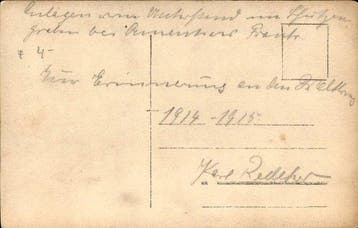 Anlegen vom Unterstand im Schützen-
graben bei Armentiers Frankr.
z 4-
Zur Erinnerung an den Weltkrieg
1914-1915.
Karl